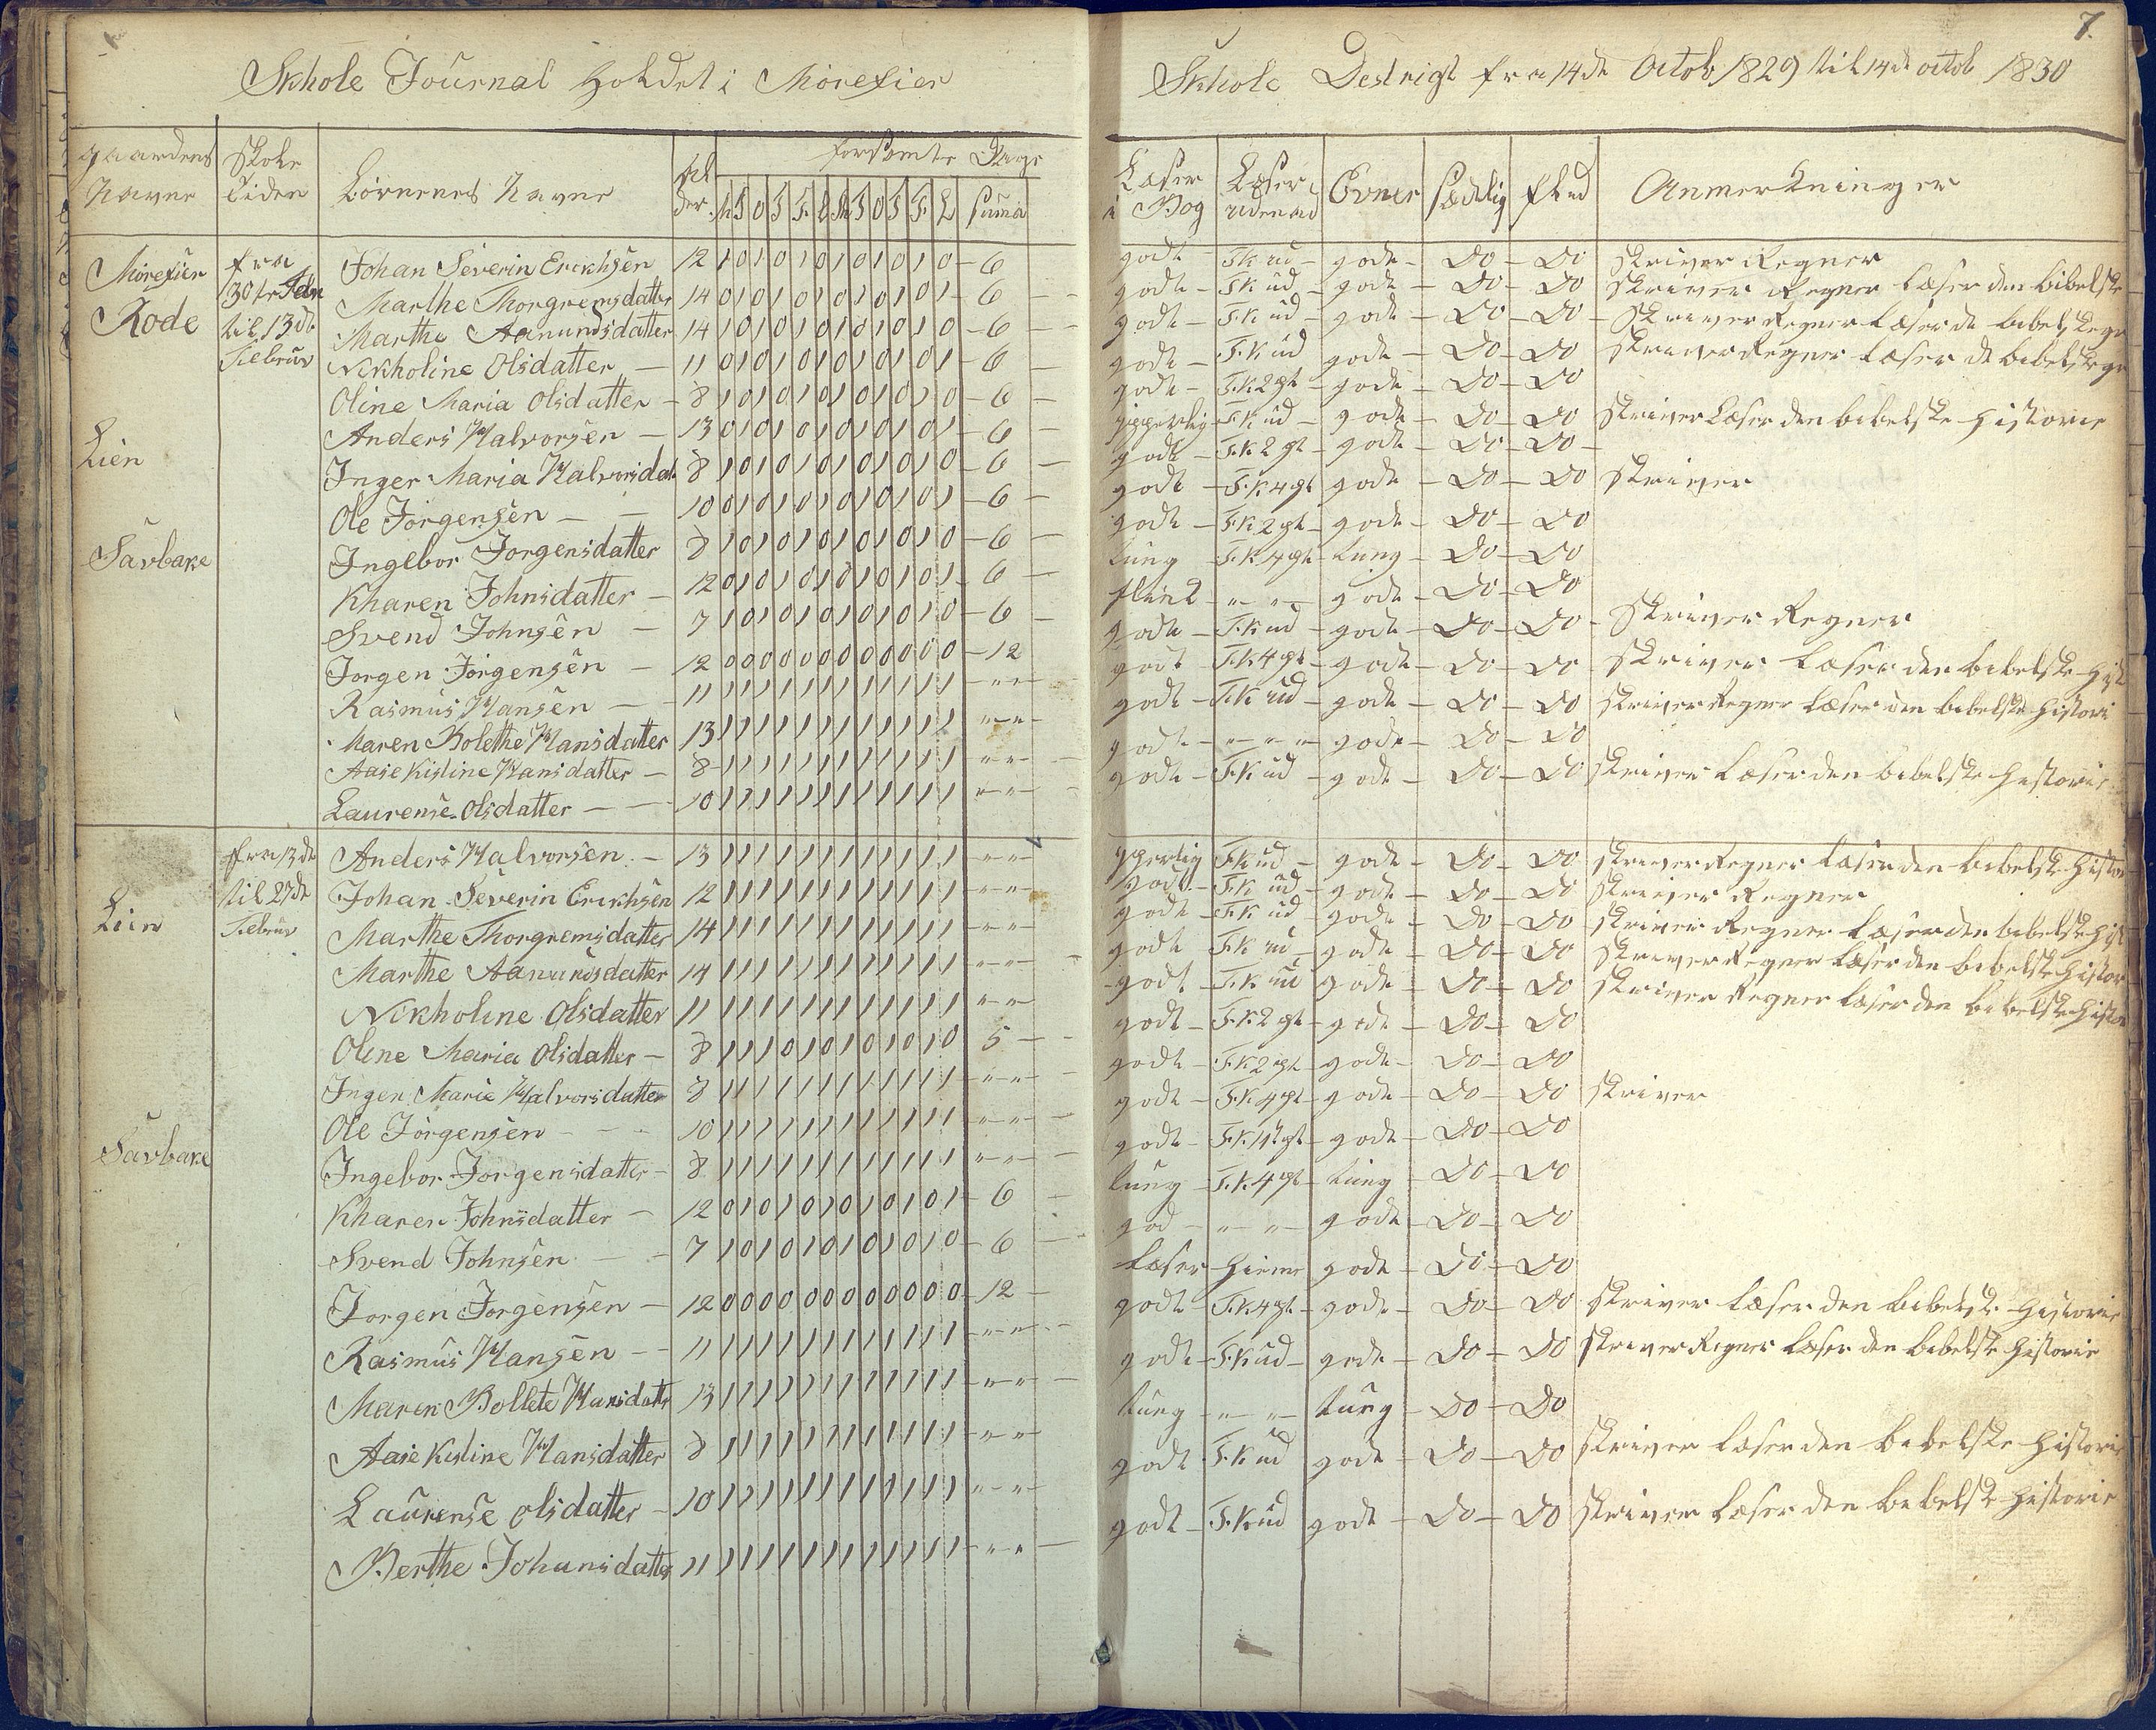 7.
Skhole Journal Holdet i Morefier
Skhole Destrigt fra 14de Octob 1829 til 14de octob 1830
gaardens Navne
Skole Tiden
Börnenes Navne
Al der
forsömte Dage
M T O T F L M T O T F L Suma
Læser i Bog
Læser udenad
Evner
sædelig
flid
Anmerkninger
Morefier Rode
fra 30te Jan til 13de Februr
Johan Severin Erikhsen 12 1 0 1 0 1 0 1 0 1 0 1 0 - 6 godt - F K ud - gode - Do - Do skriver Regner
Marthe Thorgremsdatter 14 0 1 0 1 0 1 0 1 0 1 0 1 - 6 godt - F K ud - gode - Do - Do skriver Regner læser den bibelske
Marthe Aanundsdatter 14 1 0 1 0 1 0 1 0 1 0 1 0 - 6 godt - F K ud - gode - Do - Do - skriver Regner læser de bibelske
Nekholine Olsdatter - 11 0 1 0 1 0 1 0 1 0 1 0 1 - 6 godt - F.K ud gode - Do - Do skriver Regner læser de bibelske
Oline Maria Olsdatter - 8 1 0 1 0 1 0 1 0 1 0 1 0 - 6 godt - F.K 2 pt - gode - Do - Do
Lien
Anders Halvorsen - 13 0 1 0 1 0 1 0 1 0 1 0 1 - 6 F K ud - gode - Do - Do skriver Læser den bibelske Historie
Inger Maria Halvorsdat 8 1 0 1 0 1 0 1 0 1 0 1 0 - 6 godt - F.K 2 pt - gode - Do - Do
Ole Jorgensen - 10 0 1 0 1 0 1 0 1 0 1 0 1 - 6 godt - F.K 4 pt gode - Do - Do skriver
Savbake
Ingebor Jorgensdatter 8 1 0 1 0 1 0 1 0 1 0 1 0 - 6 godt - F.K 2 pt - gode - Do - Do
Kharen Johnsdatter - 12 0 1 0 1 0 1 0 1 0 1 0 1 - 6 tung - F.K 4 pt - tung - Do - Do
Svend Johnsen - 7 1 0 1 0 1 0 1 0 1 0 1 0 - 6 - " - " - gode - Do - Do
Jorgen Jörgensen - 12 0 0 0 0 0 0 0 0 0 0 0 0 - 12 godt - F.K ud - gode - Do - Do - Skriver Regner
Rasmus Hansen - 11 1 1 1 1 1 1 1 1 1 1 1 1 - " - " - godt - F.K 4 pt - gode - Do - Do skriver læser den bibelske Hist
Maren Bolethe Hansdatter 13 1 1 1 1 1 1 1 1 1 1 1 1 " - " - godt - F.K ud - gode - Do - Do skriver Regner læser den bibelske Histori
Aase Kistine Hansdatter - 8 1 1 1 1 1 1 1 1 1 1 1 1 " - " - godt - " - " - gode - Do - Do
Laurense Olsdatter - 10 1 1 1 1 1 1 1 1 1 1 1 1 " - " - godt - F.K ud - gode - Do - Do skriver læser den bibelske historie
Lien
fra 13de til 27de Februr
Anders Halvorsen - 13 1 1 1 1 1 1 1 1 1 1 1 1 - " - " - F.K ud - gode - Do - Do skriver Regner læser den bibelske Histori
Johan Severin Erikhsen 12 1 1 1 1 1 1 1 1 1 1 1 1 - " - " - godt - F K ud - gode - Do - Do skriver Regner
Marthe Thorgremsdatter 14 1 1 1 1 1 1 1 1 1 1 1 1 - " - " - godt - F K ud - gode - Do - Do skriver Regner læser den bibelske Hist
Marthe Aanundsdatter 14 1 1 1 1 1 1 1 1 1 1 1 1 - " - " - godt F K ud - gode - Do - Do skriver Regner læser den bibelske Histor
Nekholine Olsdatter 11 1 1 1 1 1 1 1 1 1 1 1 1 - " - " godt - F.K ud gode - Do - Do skriver Regner læser den bibelske Histor
Oline Maria Olsdatter - 8 1 1 1 0 1 0 1 0 1 0 1 0 5 - godt - F.K 2 pt - gode - Do - Do
Inger Marie Halvorsdatter 8 1 1 1 1 1 1 1 1 1 1 1 1 - " - " - godt - F.K 2 pt gode - Do - Do
Ole Jörgensen - 10 1 1 1 1 1 1 1 1 1 1 1 1 - " - " - godt - F.K 4 pt - gode - Do - Do skriver
Savbake
Ingebor Jorgensdatter - 8 1 1 1 1 1 1 1 1 1 1 1 1 - " - " - godt - F.K pt - gode - Do - Do
Kharen Johnsdatter - 12 0 1 0 1 0 1 0 1 0 1 0 1 - 6 - tung - F.K 4 pt - tung - Do - Do
Svend Johnsen - 7 1 0 1 0 1 0 1 0 1 0 1 0 - 6 - god - " - " - gode - Do - Do
Jorgen Jorgensen - 12 0 0 0 0 0 0 0 0 0 0 0 0 - 12 - læser Hieme gode - Do - Do
Rasmus Hansen - 11 1 1 1 1 1 1 1 1 1 1 1 1 - " - " - godt - F.K 4 pt - gode - Do - Do skriver læser den bibelske Historie
Maren Bollete Hansdatter 13 1 1 1 1 1 1 1 1 1 1 1 1 - " - " - godt - F.K ud - gode - Do - Do skriver Regner læser den bibelske Historie
Aase Kistine Hansdatter 8 1 1 1 1 1 1 1 1 1 1 1 1 - " - " tung - " - " - tung - Do - Do
Laurense olsdatter - 10 1 1 1 1 1 1 1 1 1 1 1 1 - " - " - godt - F.K ud gode - Do - Do skriver læser den bibelske Historie
Berthe Johansdatter 11 1 1 1 1 1 1 1 1 1 1 1 1 - " - " - godt - F.K ud gode - Do - Do skriver læser den bibelske Historie